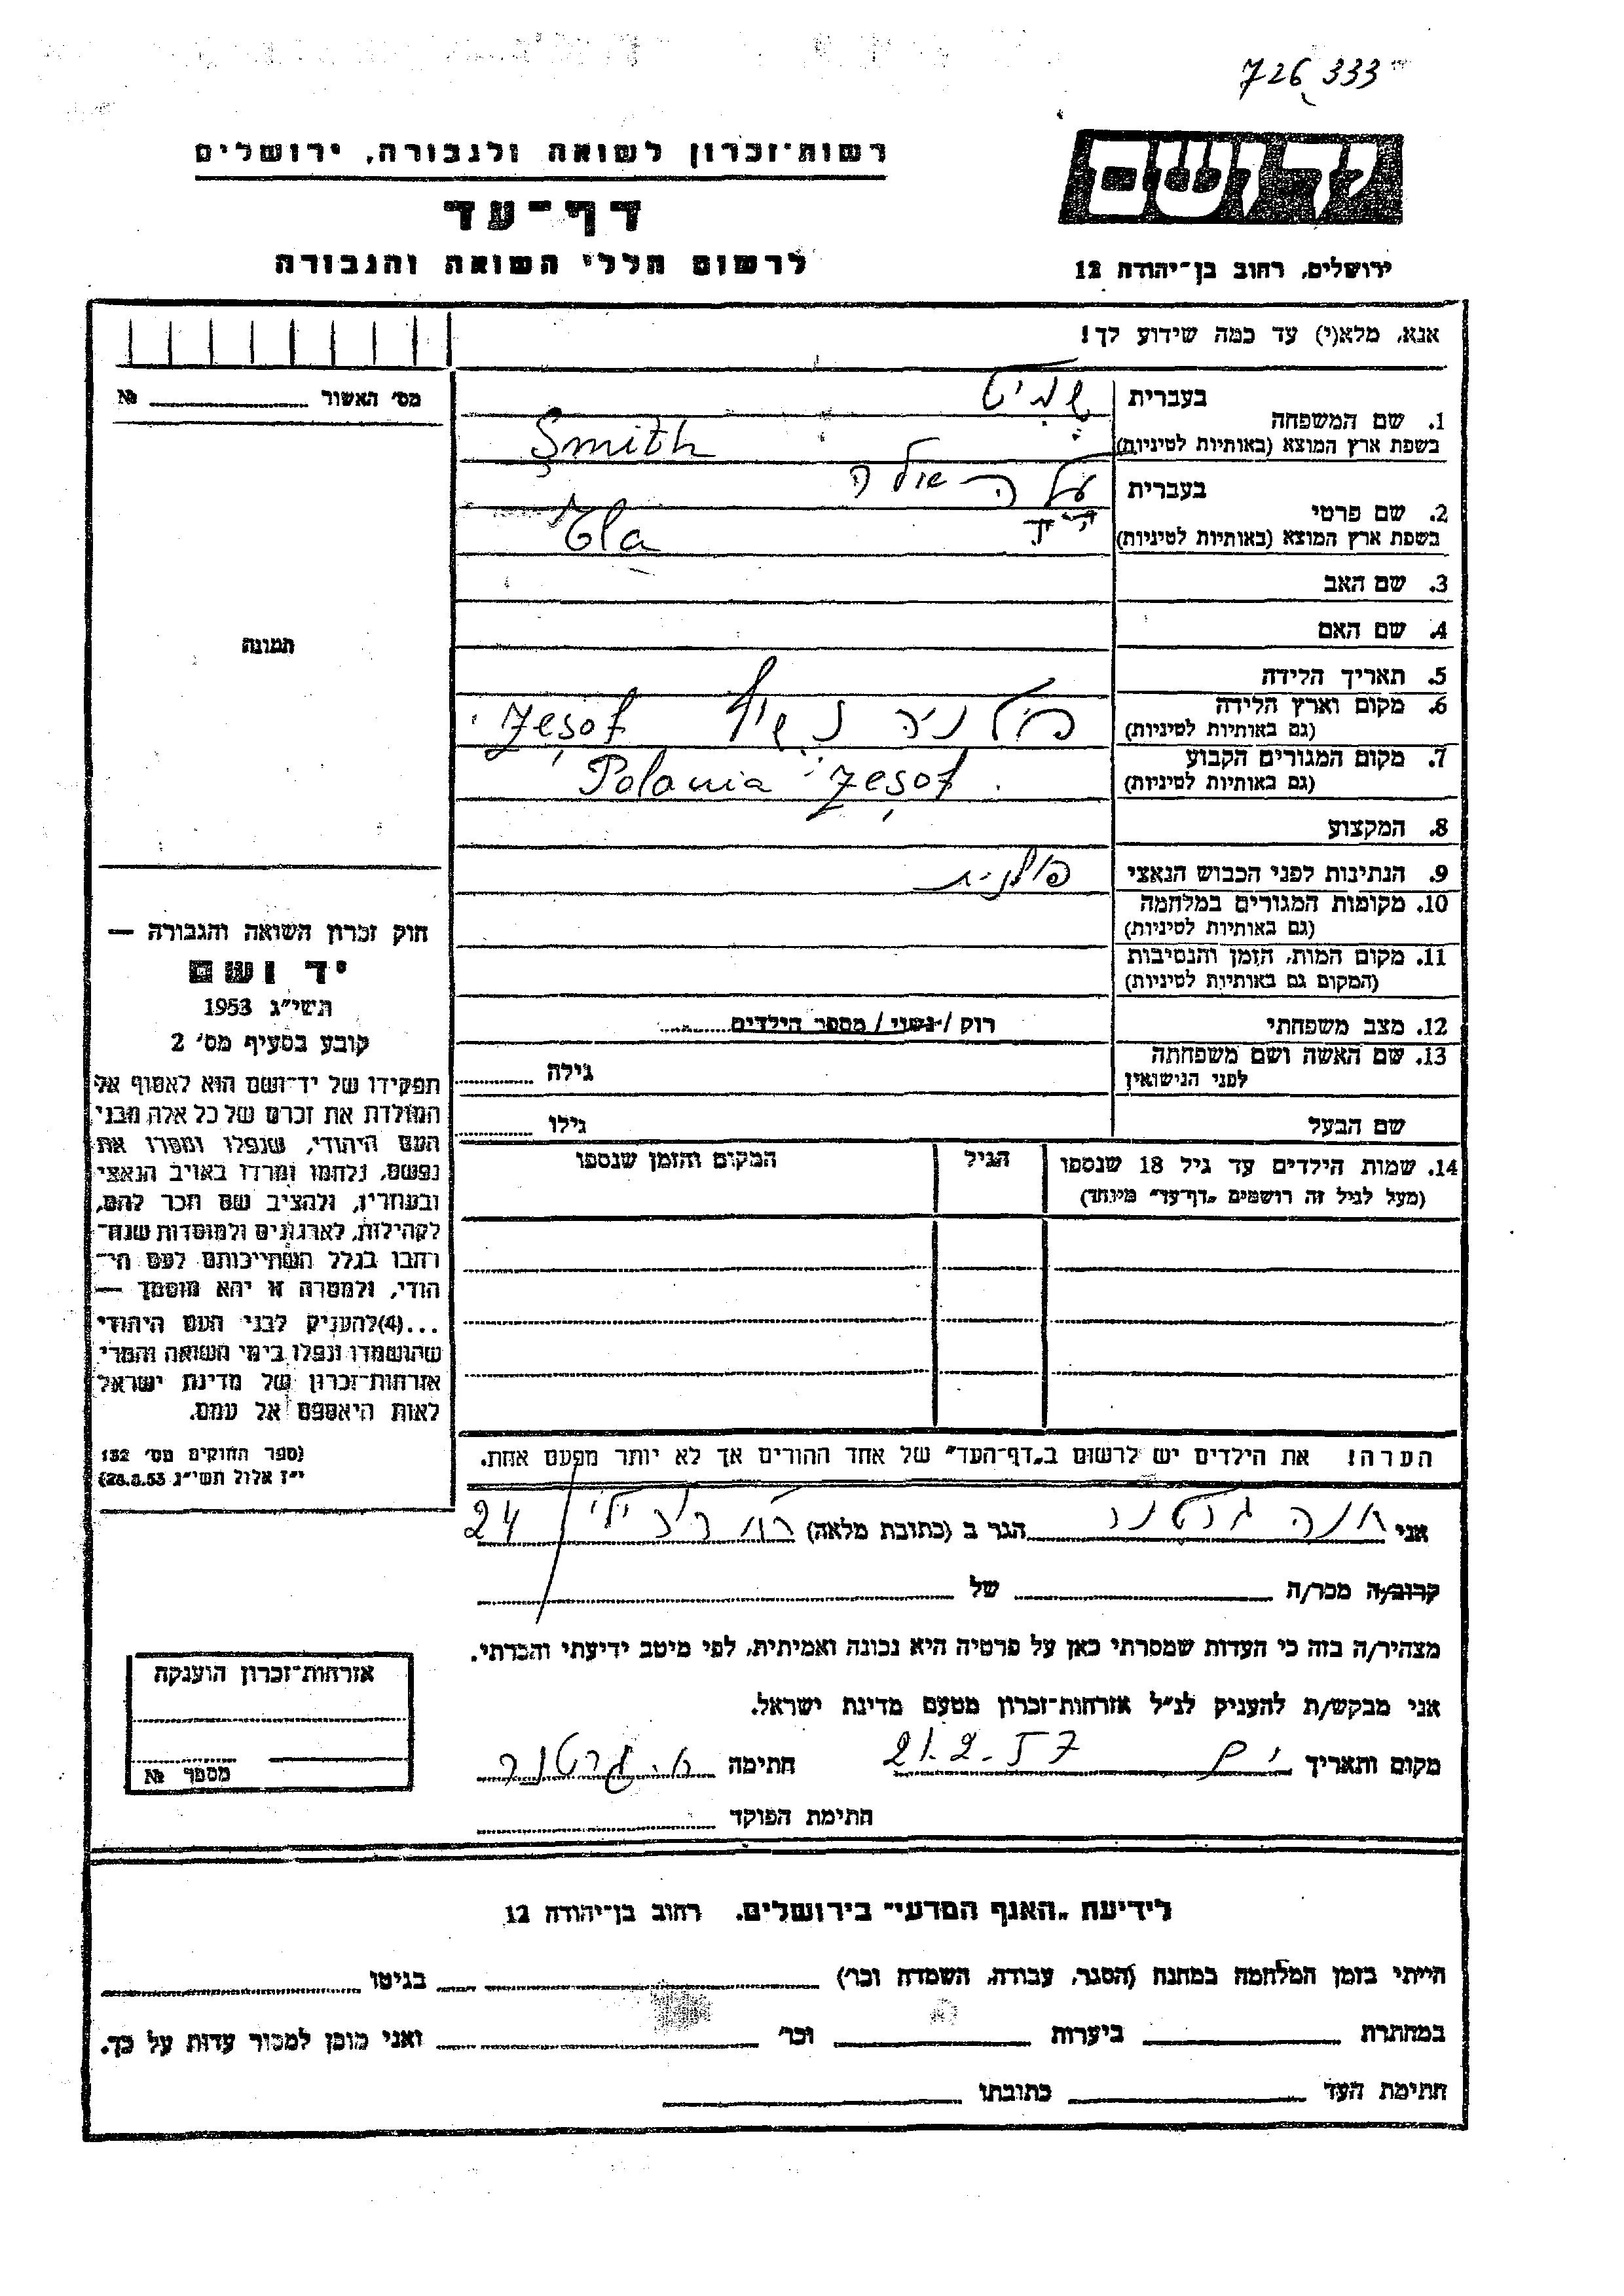 726 333
רשות־זכרון לשואה ולגבורה, ירושלים
יד ושם
דף־עד
לרשום חללי השואה והגבורה
ירושלים, רחוב בן־יהודה 12
אנא, מלא(י) עד כמה שידוע לך!
מס׳ האשור № 
בעברית שמיט
1. שם המשפחה
בשפת ארץ המוצא (באותיות לטיניות) Smith
בעברית
2. שם פרטי
בשפת ארץ המוצא (באותיות לטיניות) Ela
3. שם האב
4. שם האם
תמונה
5. תאריך הלידה
6. מקום וארץ הלידה
(גם באותיות לטיניות) Zesof
7. מקום המגורים הקבוע
(גם באותיות לטיניות) Polania Zesof
8. המקצוע
9. הנתינות לפני הכבוש הנאצי פולנית
10. מקומות המגורים במלחמה
(גם באותיות לטיניות)
11. מקום המות, הזמן והנסיבות
(המקום גם באותיות לטיניות)
12. מצב משפחתי רוק / נשוי / מספר הילדים
13. שם האשה ושם משפחתה
לפני הנישואין גילה
שם הבעל גילו
14. שמות הילדים עד גיל 18 שנספו הגיל המקום והזמן שנספו
(מעל לגיל זה רושמים „דף־עד״ מיוחד)
חוק זכרון השואה והגבורה —
יד ושם
תשי״ג 1953
קובע בסעיף מס׳ 2
תפקידו של יד־ושם הוא לאסוף אל
המולדת את זכרם של כל אלה מבני
העם היהודי, שנפלו ומסרו את
נפשם, נלחמו ומרדו באויב הנאצי
ובעוזריו, ולהציב שם וזכר להם,
לקהילות, לארגונים ולמוסדות שנח־
רבו בגלל השתייכותם לעם הי־
הודי, ולמטרה זו יהא מוסמך —
...(4)להעניק לבני העם היהודי
שהושמדו ונפלו בימי השואה והמרי
אזרחות־זכרון של מדינת ישראל
לאות היאספם אל עמם.
(ספר החוקים מס׳ 132
י״ז אלול תשי״ג 28.8.53)
הערה! את הילדים יש לרשום ב„דף־העד״ של אחד ההורים אך לא יותר מפעם אחת.
אני חנה גרטנר הגר ב (כתובת מלאה) 24
קרוב/ה מכר/ה של
מצהיר/ה בזה כי העדות שמסרתי כאן על פרטיה היא נכונה ואמיתית, לפי מיטב ידיעתי והכרתי.
אני מבקש/ת להעניק לנ״ל אזרחות־זכרון מטעם מדינת ישראל.
מקום ותאריך 21.2.57 חתימה ח. גרטנר
חתימת הפוקד
אזרחות־זכרון הוענקה
מספר №
לידיעת „האגף המדעי״ בירושלים, רחוב בן־יהודה 12
הייתי בזמן המלחמה במחנה (הסגר, עבודה, השמדה וכר׳) בגיטו
במחתרת ביערות וכר׳ ואני מוכן למסור עדות על כך.
חתימת העד כתובתו